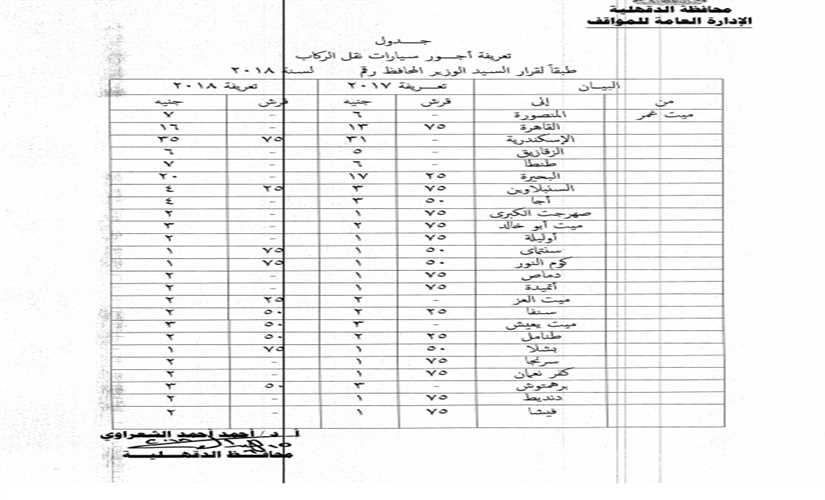 محافظة الدقهلية
الإدارة العامة للمواقف
جـــدول
تعريفة أجـــور سيارات نقل الركاب
طبقاً لقرار السيد الوزير المحافظ رقم لسنة ٢٠١٨
البيــان تعـــريفة ٢٠١٧ تعريفة ٢٠١٨
من إلى قرش جنيه قرش جنيه
ميت غمر المنصورة - ٦ - ٧
القاهرة ٧٥ ١٣ - ١٦
الإسكندرية - ٣١ ٧٥ ٣٥
الزقازيق - ٥ - ٦
طنطا - ٦ - ٧
البحيرة ٢٥ ١٧ - ٢٠
السنبلاوين ٧٥ ٣ ٢٥ ٤
أجا ٥٠ ٣ - ٤
صهرجت الكبرى ٧٥ ١ - ٢
ميت أبو خالد ٧٥ ٢ - ٣
أوليلة ٧٥ ١ - ٢
سنتماى ٥٠ ١ ٧٥ ١
كوم النور ٥٠ ١ ٧٥ ١
دماص ٧٥ ١ - ٢
أتميدة ٧٥ ١ - ٢
ميت العز - ٢ ٢٥ ٢
سنفا ٢٥ ٢ ٥٠ ٢
ميت يعيش - ٣ ٥٠ ٣
طنامل ٢٥ ٢ ٥٠ ٢
بشلا ٥٠ ١ ٧٥ ١
سرنجا ٧٥ ١ - ٢
كفر نعمان ٧٥ ١ - ٢
برهمتوش - ٣ ٥٠ ٣
دنديط ٧٥ ١ - ٢
فيشا ٧٥ ١ - ٢
أ.د/ أحمد أحمد الشعراوي
محافـــظ الدقهـــلية